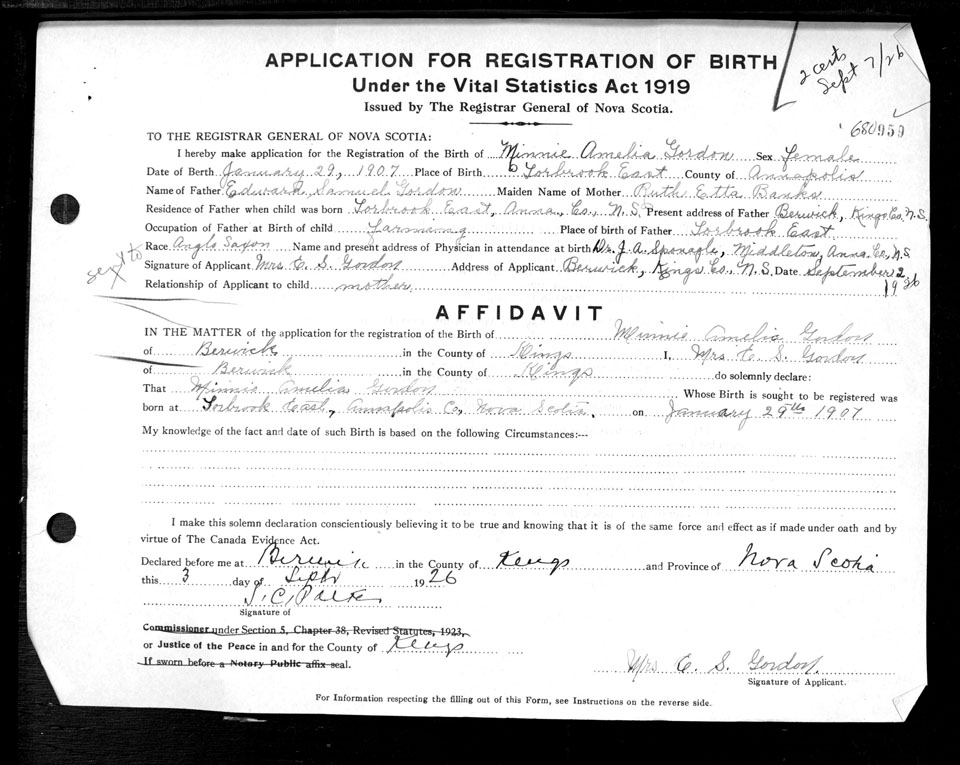 APPLICATION FOR REGISTRATION OF BIRTH
2 certs
Sept 7/26
Under the Vital Statistics Act 1919
Issued by The Registrar General of Nova Scotia.
680959
TO THE REGISTRAR GENERAL OF NOVA SCOTIA:
I hereby make application for the Registration of the Birth of Minnie Amelia Gordon Sex female
Date of Berth January 29, 1907 Place of Birth Torbrook East County of Annapolis
Name of Father Edward Samuel Gordon Maiden Name of Mother Ruth Etta Banks
Residence of Father when child was born Torbrook East, Anna, Co., N.S. Present address of Father Berwick, Kings Co. N.S.
Occupation of Father at Birth of child Farming Place of birth of Father Torbrook East
Race Anglo Saxon Name and present address of Physician in attendance at birth Dr. J. A. Sponagle, Middleton, Anna. Co, N.S.
Signature of Applicant Mrs E. S. Gordon Address of Applicant Berwick, Kings Co., N.S. Date September 2
1926
Relationship of Applicant to child mother
AFFIDAVIT
IN THE MATTER of the application for the registration of the Birth of Minnie Amelia Gordon
of Berwick in the County of Kings I, Mrs E. S. Gordon
of Berwick in the County of Kings do solemnly declare:
That Minnie Amelia Gordon Whose Birth is sought to be registered was
born at Torbrook East, Annapolis Co, Nova Scotia. on January 29th 1907
My knowledge of the fact and date of such Birth is based on the following Circumstances:--
I make this solemn declaration conscientiously believing it to be true and knowing that it is of the same force and effect as if made under oath and by
virtue of The Canada Evidence Act.
Declared before me at Berwick in the County of Kings and Province of Nova Scotia
this 3 day of Septr 1926
S. C. Parker
Signature of
Commissioner under Section 5, Chapter 38, Revised Statutes, 1923,
or Justice of the Peace in and for the County of Kings
If sworn before a Notary Public affix seal.
Mrs E. S. Gordon.
Signature of Applicant.
For Information respecting the filling out of this Form, see Instructions on the reverse side.